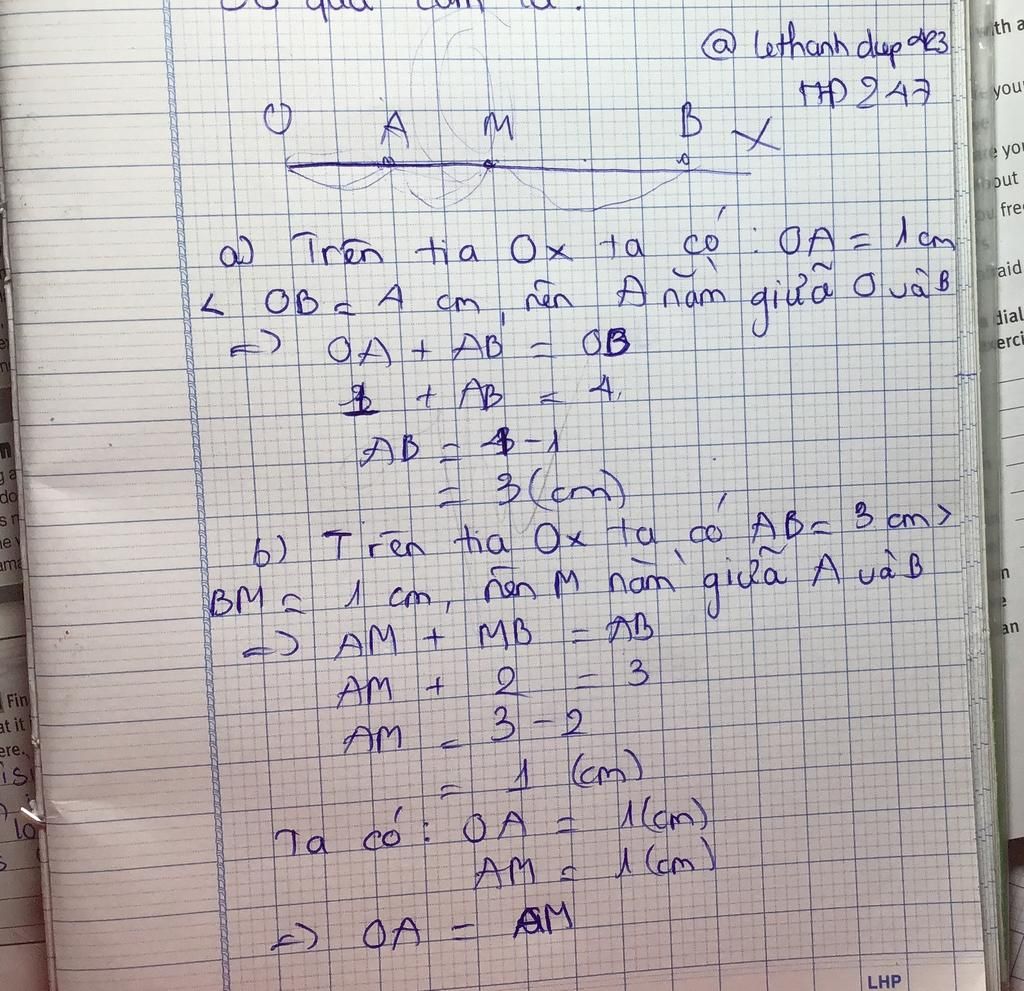 @ lethanh
HD 247
O A M B x
a) Trên tia Ox ta có : OA = 1 cm
< OB = 4 cm, nên A nằm giữa O và B
=> OA + AB = OB
1 + AB = 4
AB = 4 - 1
= 3 (cm)
b) Trên tia Ox ta có AB = 3 cm >
BM = 1 cm, nên M nằm giữa A và B
=> AM + MB = AB
AM + 2 = 3
AM = 3 - 2
= 1 (cm)
Ta có : OA = 1 (cm)
AM = 1 (cm)
=> OA = AM
LHP